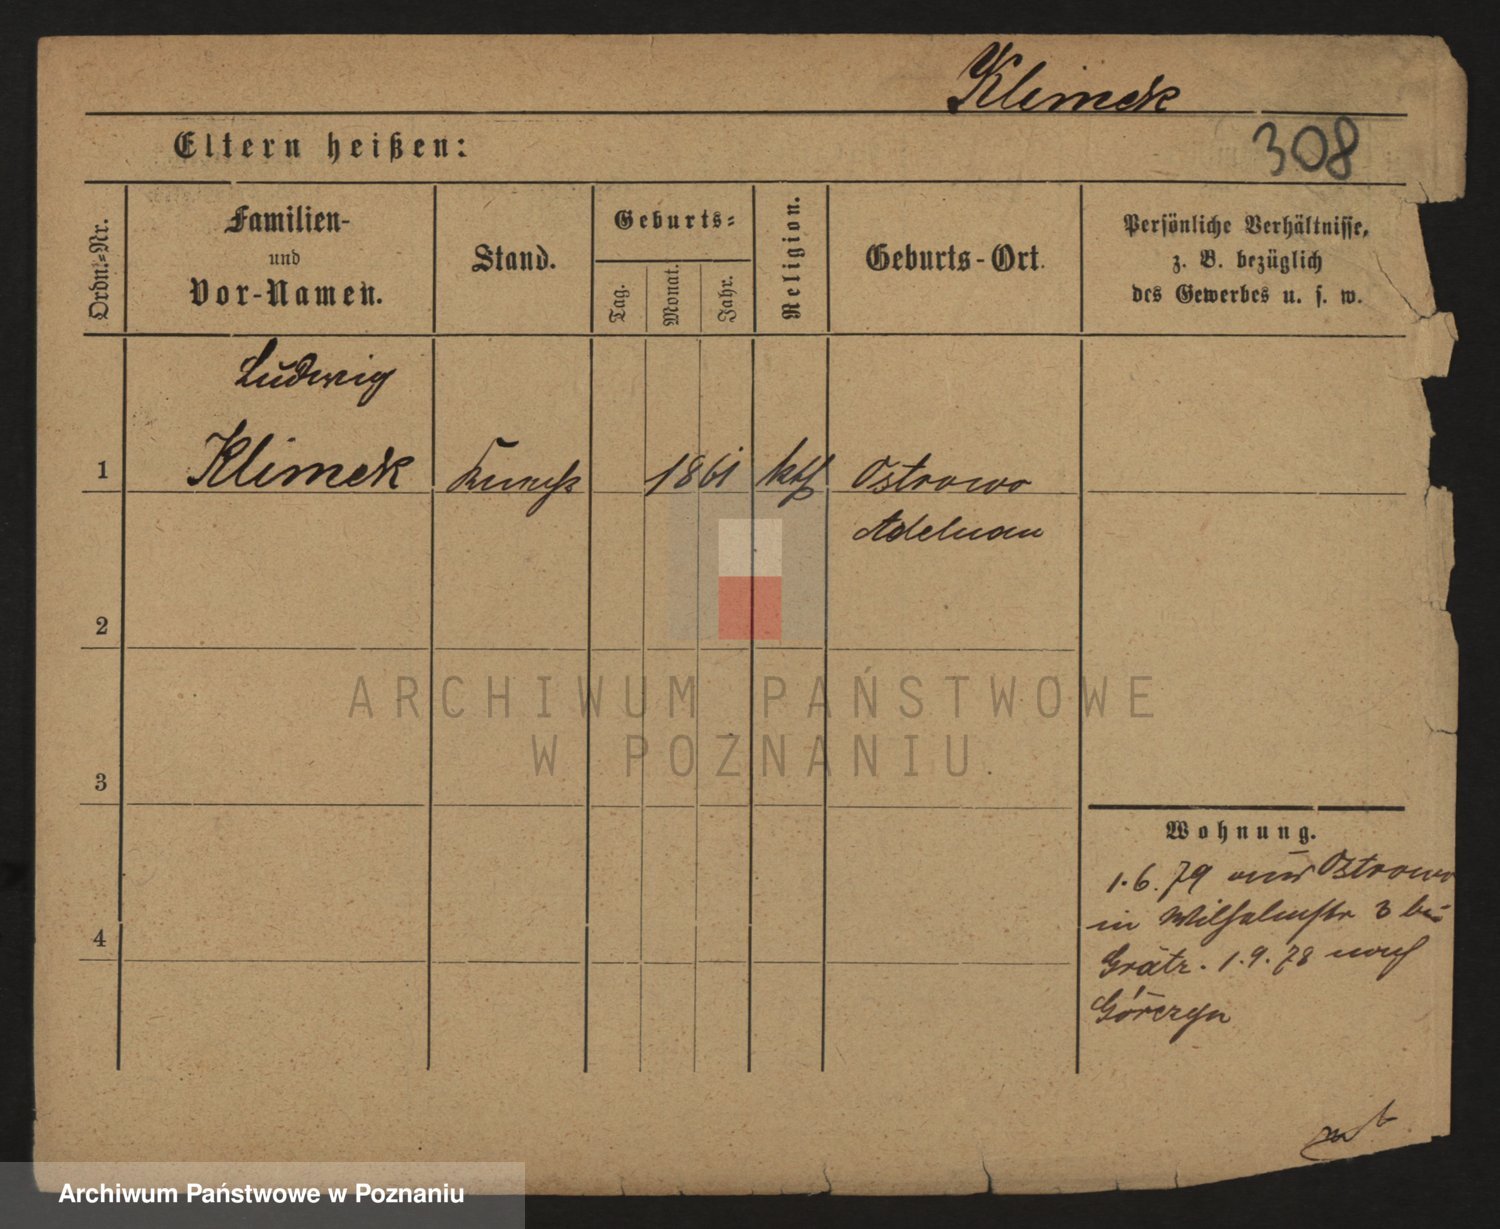 Klimek
308
Eltern heißen:
Ordn.-Nr.
Familien-
und
Vor-Namen.
Stand.
Geburts-
Tag.
Monat.
Jahr.
Religion.
Geburts-Ort.
Persönliche Verhältnisse,
z. B. bezüglich
des Gewerbes u. s. w.
Ludwig
1 Klimek 1861 kth Ostrowo
Adelnau
2
3
4
ARCHIWUM PAŃSTWOWE
W POZNANIU
Wohnung.
1.6.79 aus Ostrowo
in Wilhelmstr 3 bei
Grätz. 1.9.78 nach
Górczyn
Archiwum Państwowe w Poznaniu